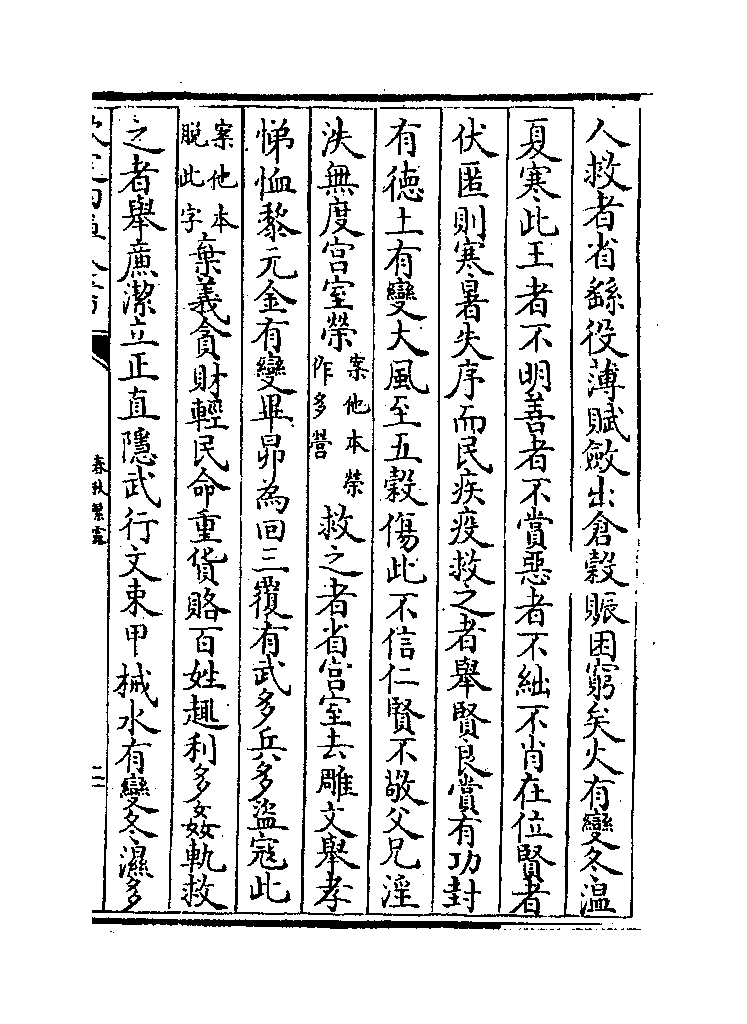 人救者省繇役薄賦斂出倉穀賑困窮矣火有變冬溫
夏寒此王者不明善者不賞惡者不絀不肖在位賢者
伏匿則寒暑失序而民疾疫救之者舉賢良賞有功封
有德土有變大風至五穀傷此不信仁賢不敬父兄淫
泆無度宮室榮案他本榮作多營救之者省宮室去雕文舉孝
悌恤黎元金有變畢昴為回三覆有武多兵多盜寇此
案他本脫此字棄義貪財輕民命重貨賂百姓趣利多姦軌救
之者舉廉潔立正直隱武行文束甲械水有變冬濕多
春秋繁露